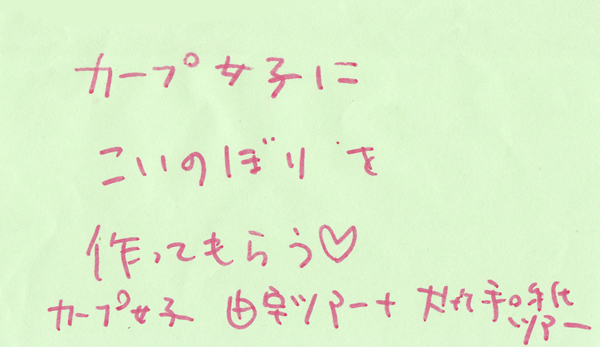 カープ女子に
こいのぼりを
作ってもらう♡
カープ女子 由宇ツアー+ 大竹手
ツアー